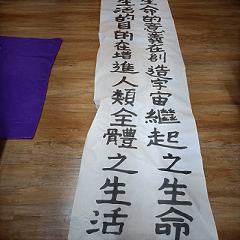 生命的意義在創造宇宙繼起之生命
生活的目的在增進人類全體之生活